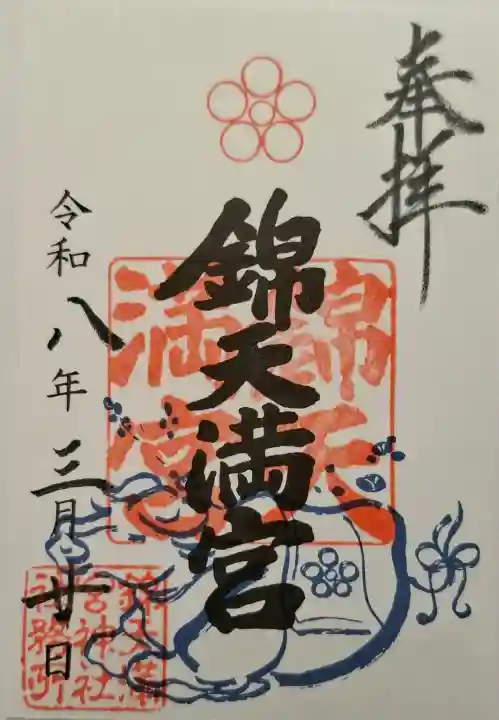 奉拝
錦天満宮
錦天
満宮
令和八年三月廿日
錦天満
宮神社
社務所